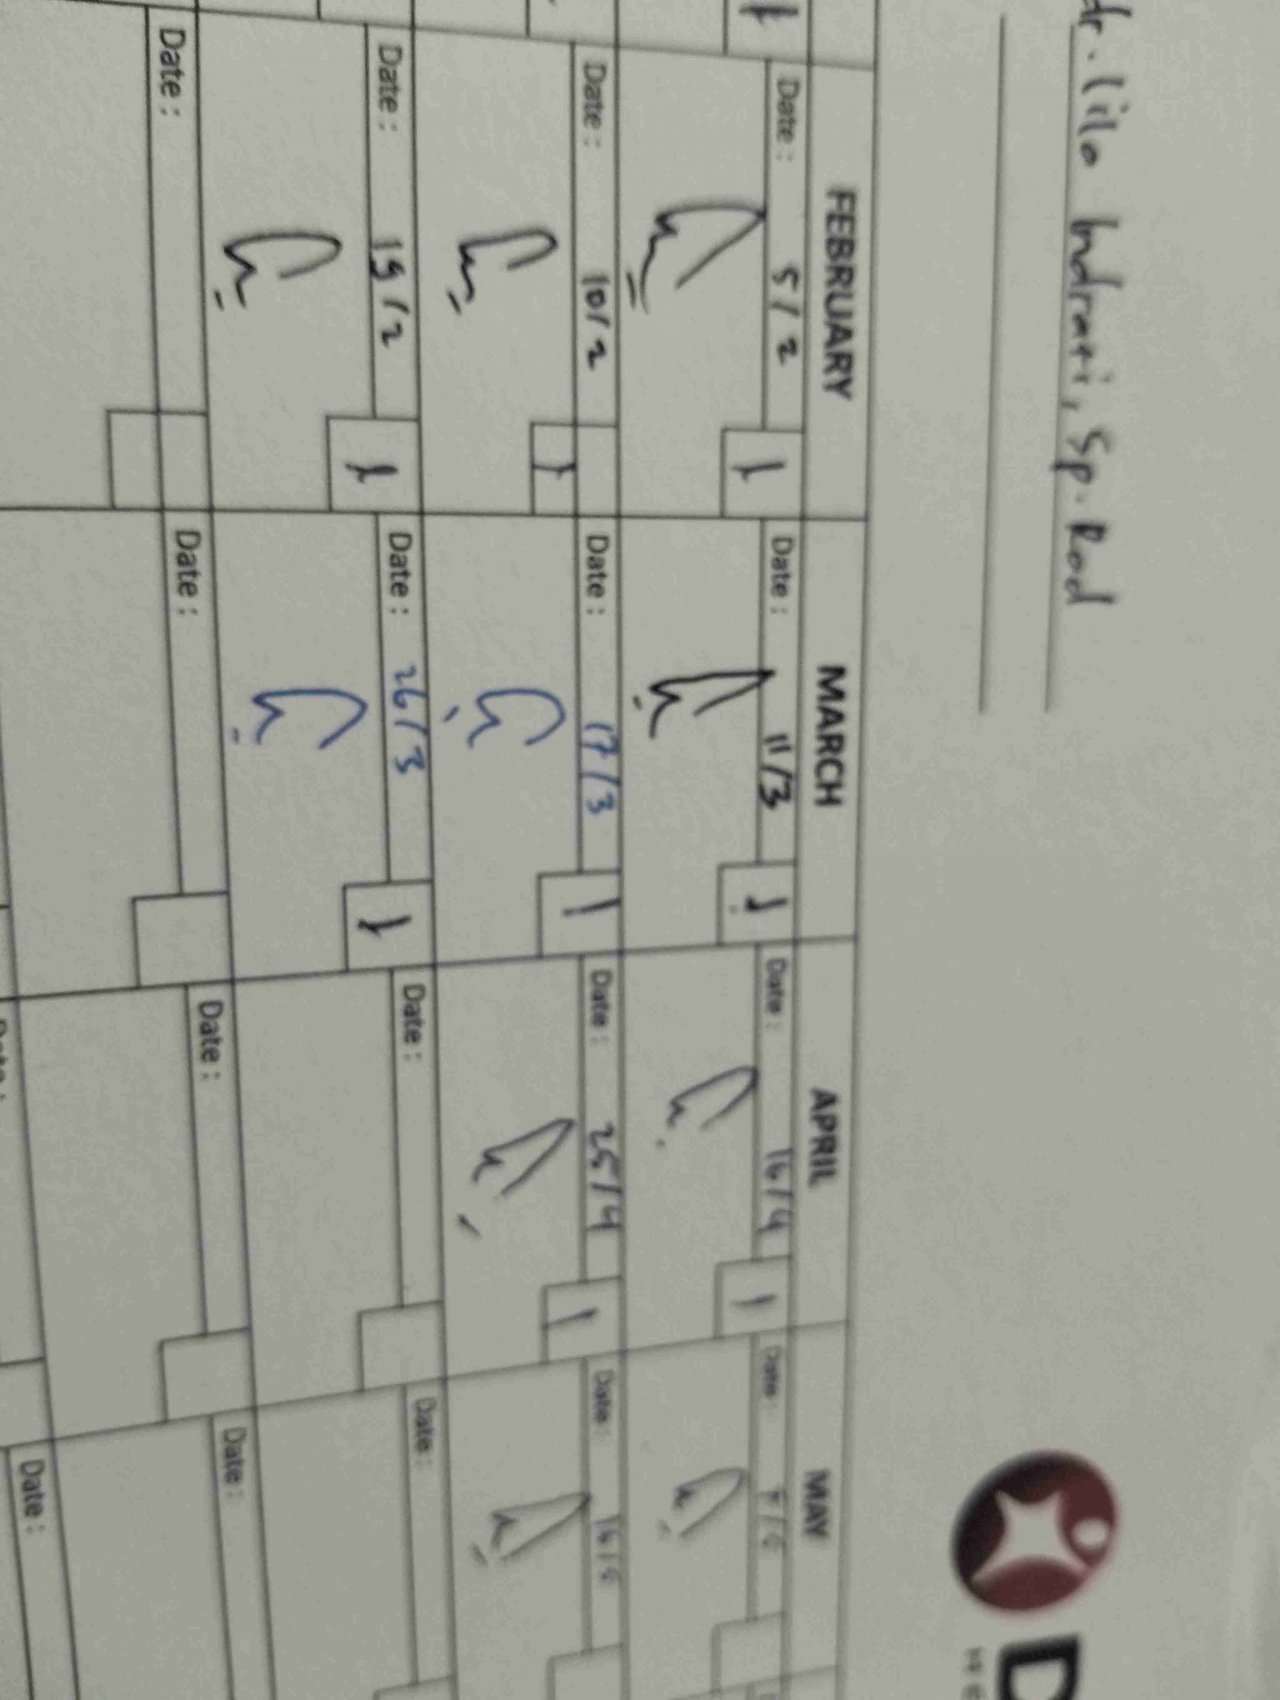 dr. Lilo Indrati, Sp. Rad
FEBRUARY MARCH APRIL MAY
Date: 5/2 Date: 11/3 Date: 16/4 Date:
1 1 1
Date: 10/2 Date: 17/3 Date: 25/4 Date: 16/5
1 1 1
Date: 19/2 Date: 26/3 Date: Date:
1 1
Date: Date: Date: Date:
Date: